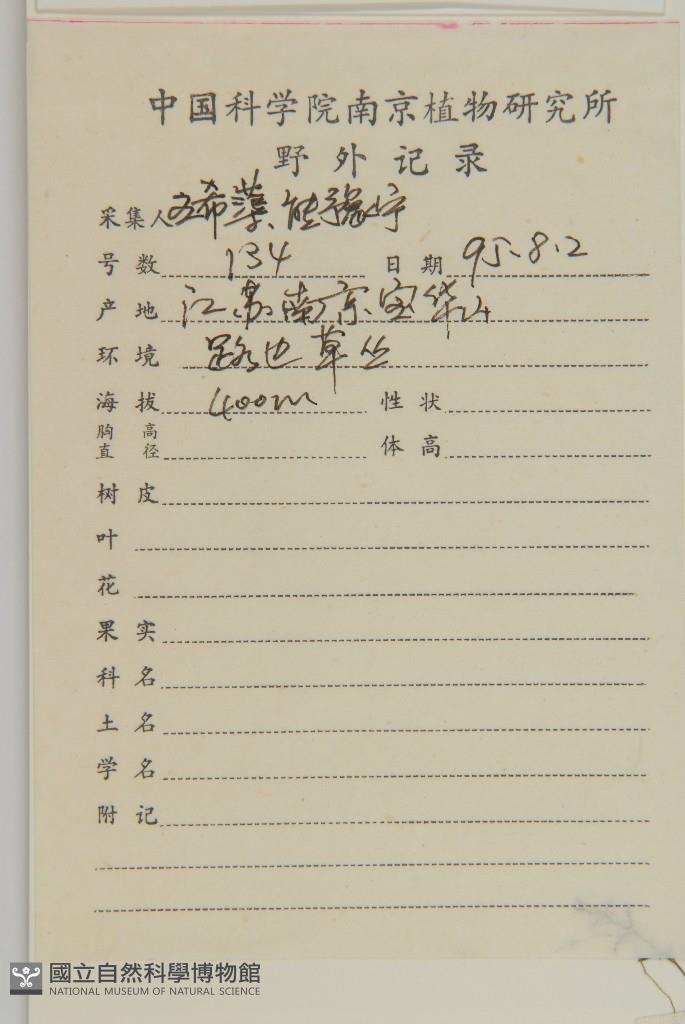 中国科学院南京植物研究所
野外记录
采集人 王希蕖 熊豫宁
号数 134 日期 95.8.2
产地 江苏南京宝华山
环境 路边草丛
海拔 400m 性状
胸高直径 体高
树皮
叶
花
果实
科名
土名
学名
附记
國立自然科學博物館
NATIONAL MUSEUM OF NATURAL SCIENCE